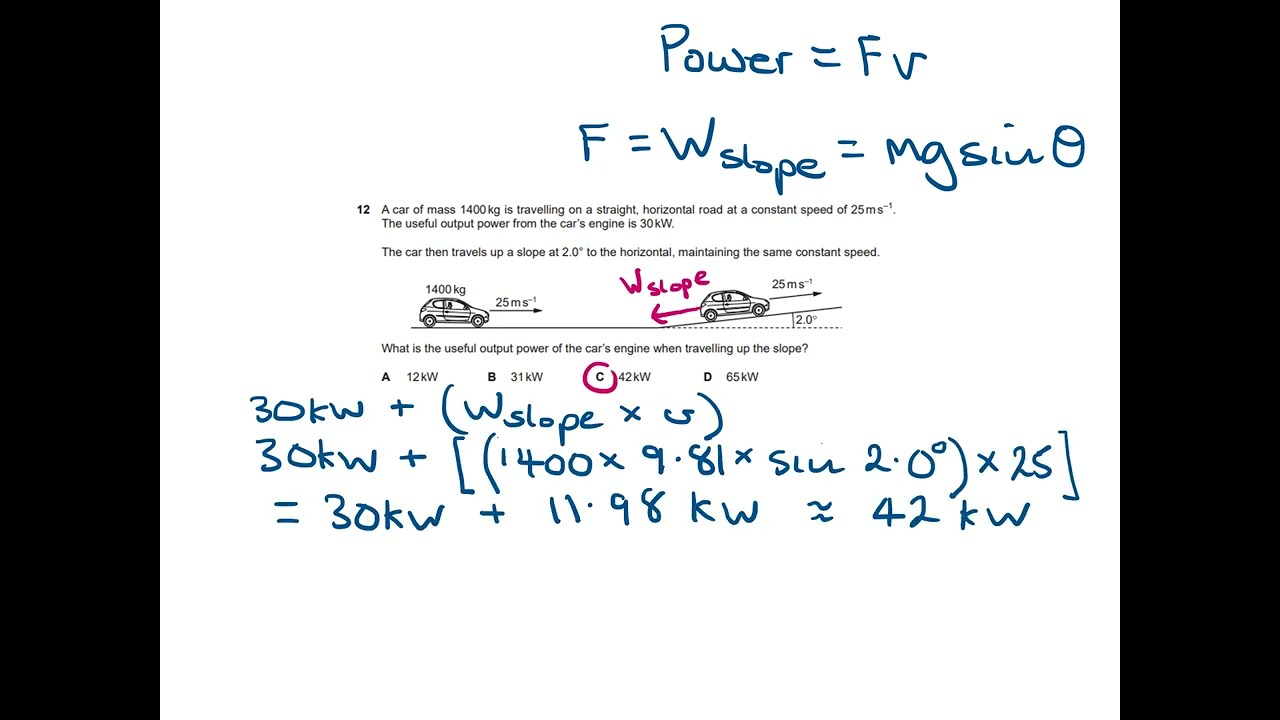 Power = Fv
F = Wslope = mg sin θ
12 A car of mass 1400 kg is travelling on a straight, horizontal road at a constant speed of 25 m s⁻¹.
The useful output power from the car’s engine is 30 kW.
The car then travels up a slope at 2.0° to the horizontal, maintaining the same constant speed.
Wslope
25 m s⁻¹
1400 kg
25 m s⁻¹
2.0°
What is the useful output power of the car’s engine when travelling up the slope?
A 12 kW B 31 kW C 42 kW D 65 kW
30kW + (Wslope × v)
30kW + [(1400 × 9.81 × sin 2.0°) × 25]
= 30kW + 11.98 kW ≈ 42 kW